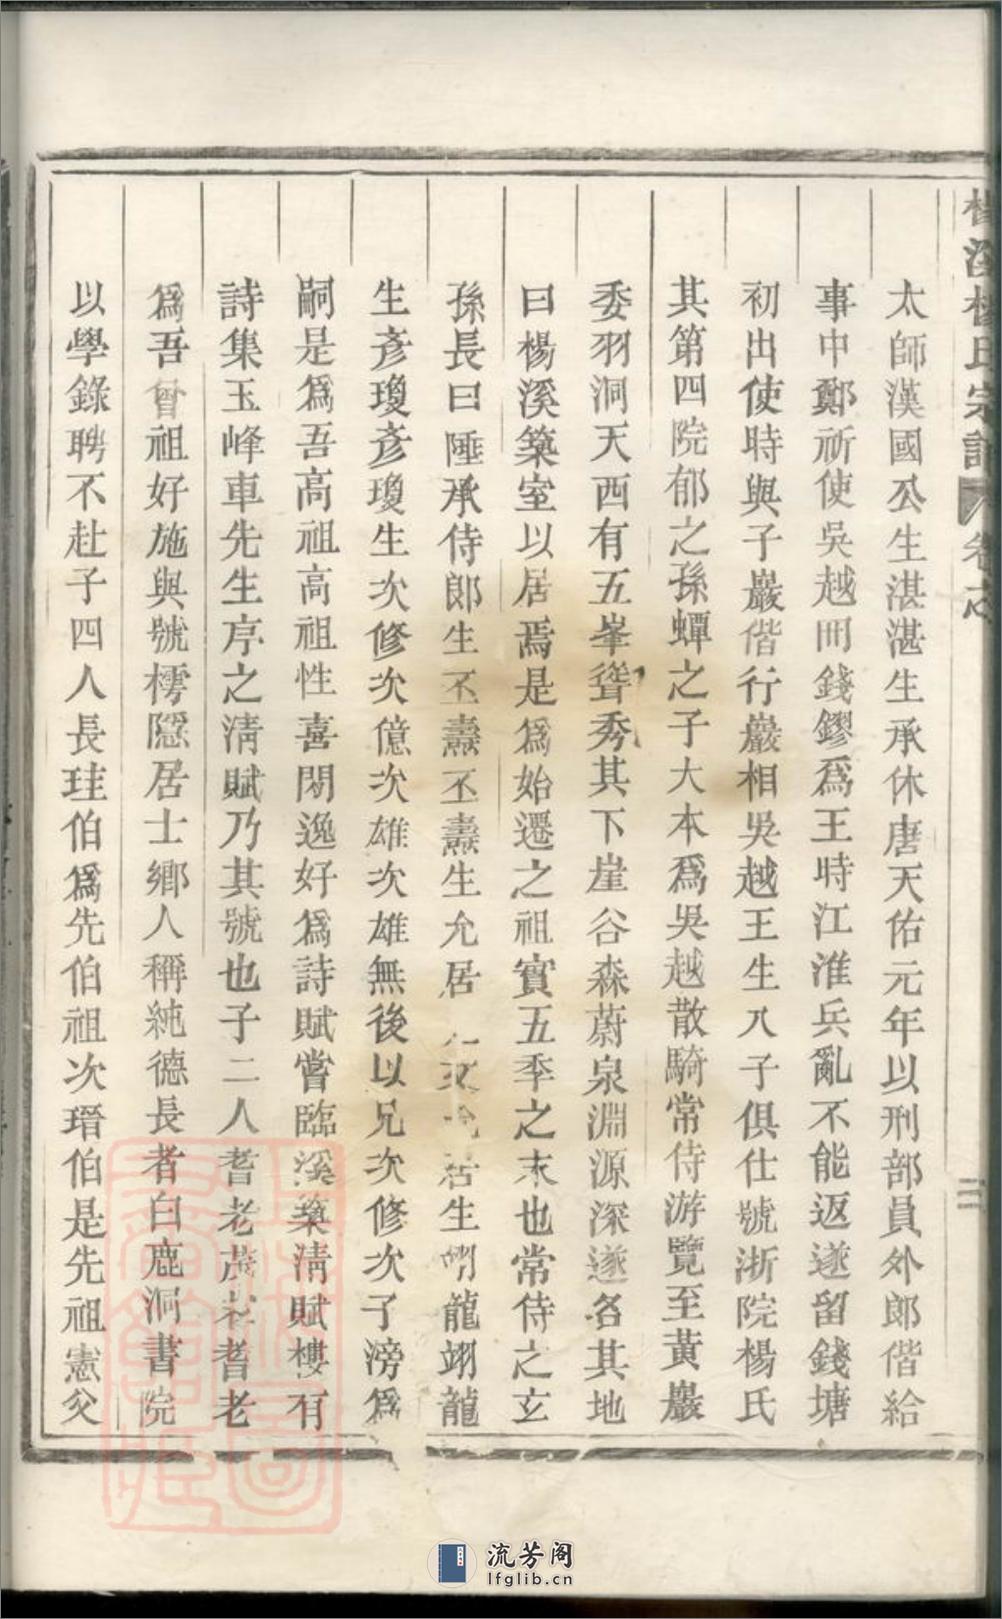 楊溪楊氏宗譜 卷之
二
太師漢國公生湛湛生承休唐天佑元年以刑部員外郎偕給
事中鄭祈使吳越冊錢鏐爲王時江淮兵亂不能返遂留錢塘
初出使時與子巖偕行巖相吳越王生八子俱仕號浙院楊氏
其第四院郁之孫蟫之子大本爲吳越散騎常侍游覽至黃巖
委羽洞天西有五峯聳秀其下崖谷森蔚泉淵源深邃名其地
曰楊溪築室以居焉是爲始遷之祖實五季之末也常侍之玄
孫長曰陲承侍郎生丕燾丕燾生允居 允居生翊龍翊龍
生彥瓊彥瓊生次修次億次雄次雄無後以兄次修次子滂爲
嗣是爲吾高祖高祖性喜閒逸好爲詩賦嘗臨溪築淸賦樓有
詩集玉峰車先生序之淸賦乃其號也子二人耆老茂老耆老
爲吾曾祖好施與號樗隱居士鄉人稱純德長者白鹿洞書院
以學錄聘不赴子四人長珪伯爲先伯祖次瑨伯是先祖憲父
流芳阁
lfglib.cn